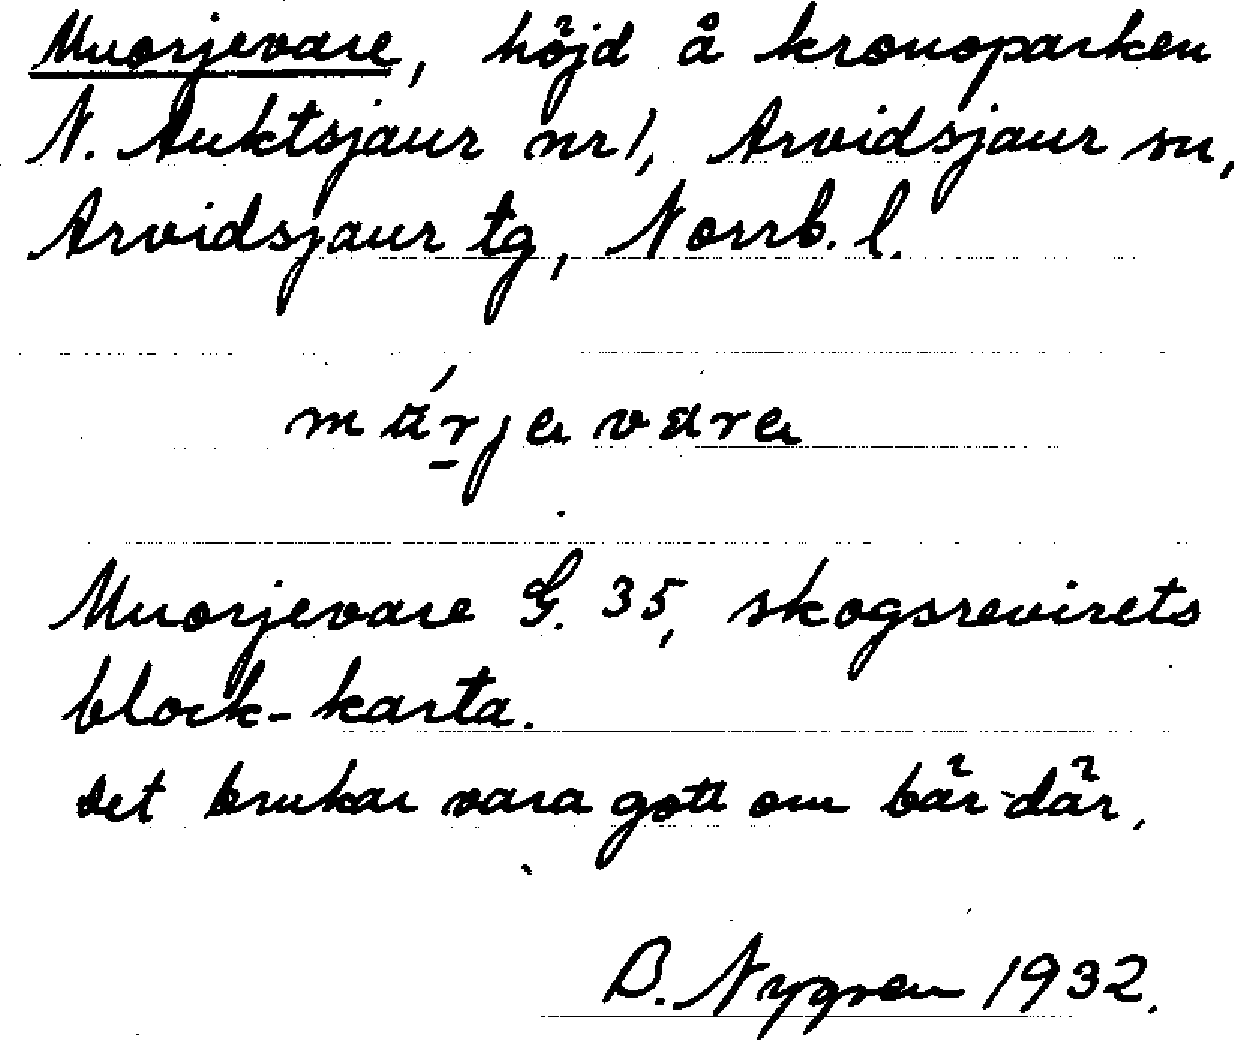 Muorjevare, höjd å kronoparken
N. Auktsjaur nr 1, Arvidsjaur sn,
Arvidsjaur tg, Norrb. l.
Muorjevare G. 35, skogsrevirets
block-karta.
det brukar vara gott om bär där.
B. Nygren 1932.